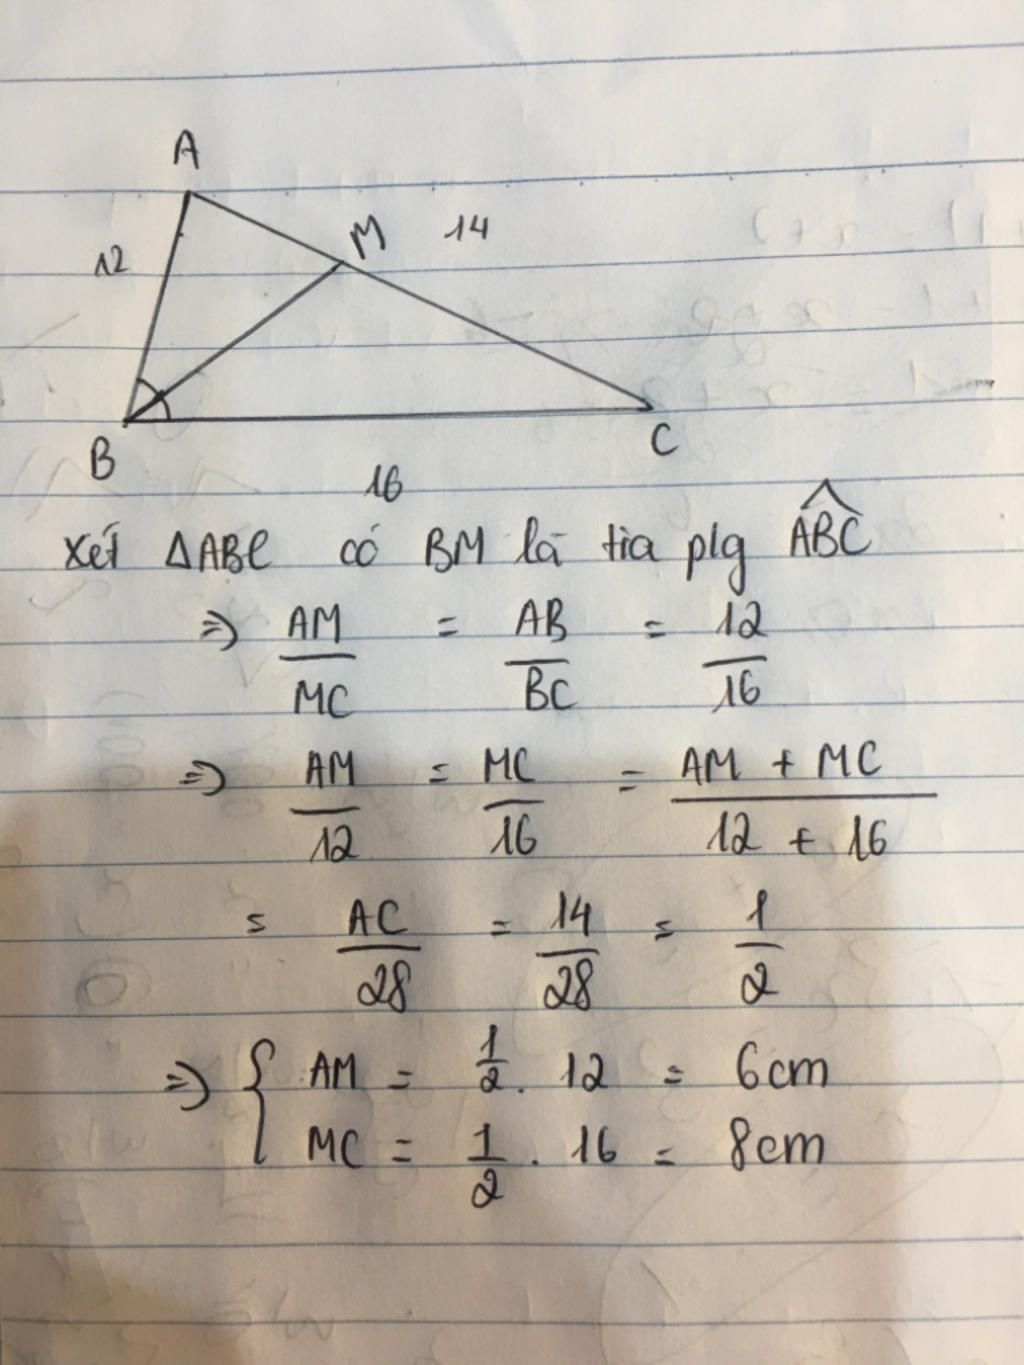 A
12
M
14
B
C
16
Xét ΔABC có BM là tia plg \widehat{ABC}
⇒ AM/MC = AB/BC = 12/16
⇒ AM/12 = MC/16 = (AM + MC)/(12 + 16)
= AC/28 = 14/28 = 1/2
⇒ { AM = 1/2 . 12 = 6cm
MC = 1/2 . 16 = 8cm